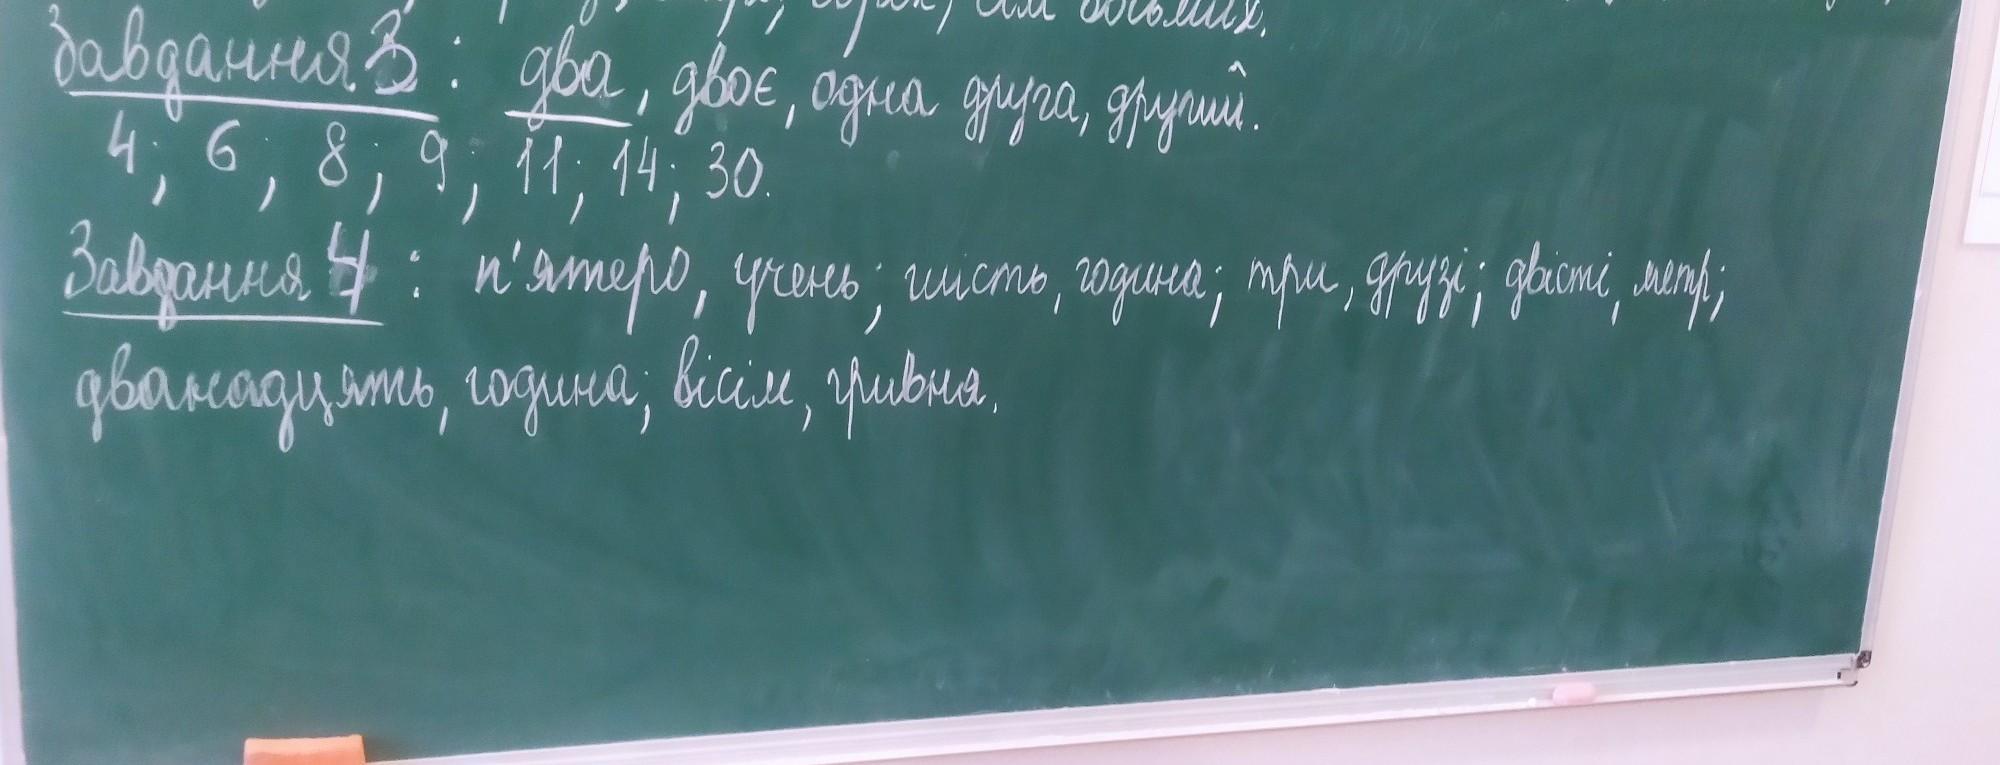 сім восьмих.
Завдання 3: два, двоє, одна друга, другий.
4; 6; 8; 9; 11; 14; 30.
Завдання 4: п'ятеро, учень; шість, година; три, друзі; двісті, метр;
дванадцять, година; вісім, гривня.